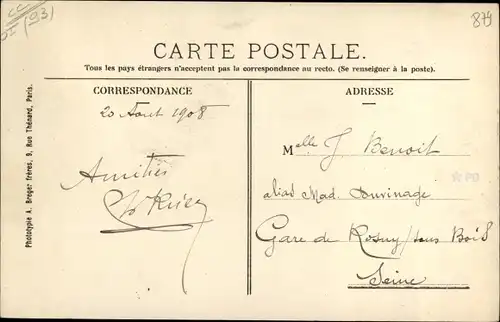 (93)
874
CARTE POSTALE.
Tous les pays étrangers n'acceptent pas la correspondance au recto. (Se renseigner à la poste).
CORRESPONDANCE
ADRESSE
20 Aout 1908
Amitiés
Melle J. Benoit
alias Mad.
Gare de Rosny/sous Bois
Seine
Photocypie A. Breger frères, 9, Rue Thénard, Paris.